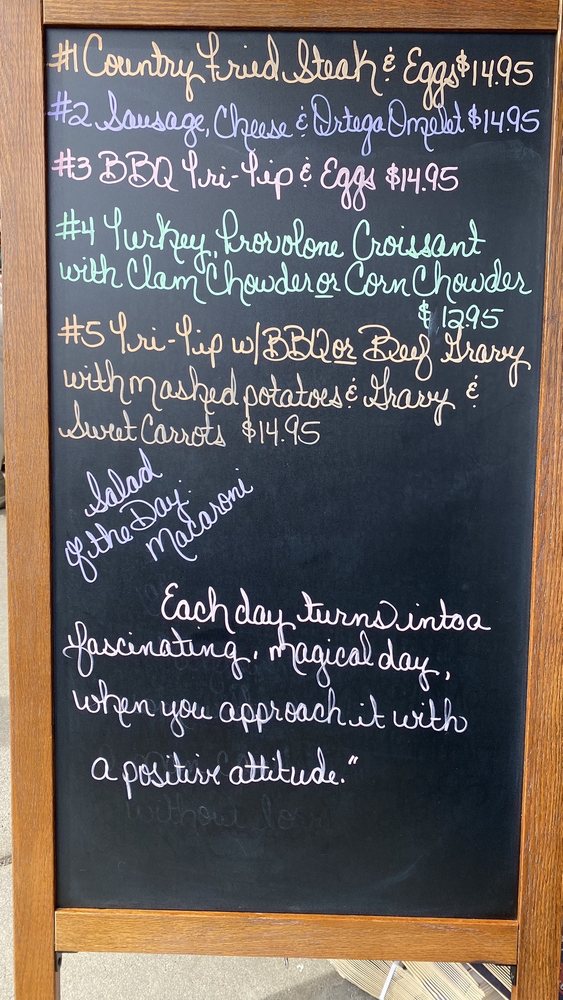 #1 Country Fried Steak & Eggs $14.95
#2 Sausage, Cheese & Ortega Omelet $14.95
#3 BBQ Tri-Tip & Eggs $14.95
#4 Turkey, Provolone Croissant
with Clam Chowder or Corn Chowder
$12.95
#5 Tri-Tip w/BBQ or Beef Gravy
with mashed potatoes & Gravy &
Sweet Carrots $14.95
Salad
of the Day.
Macaroni
Each day turns into a
fascinating, magical day,
when you approach it with
a positive attitude."